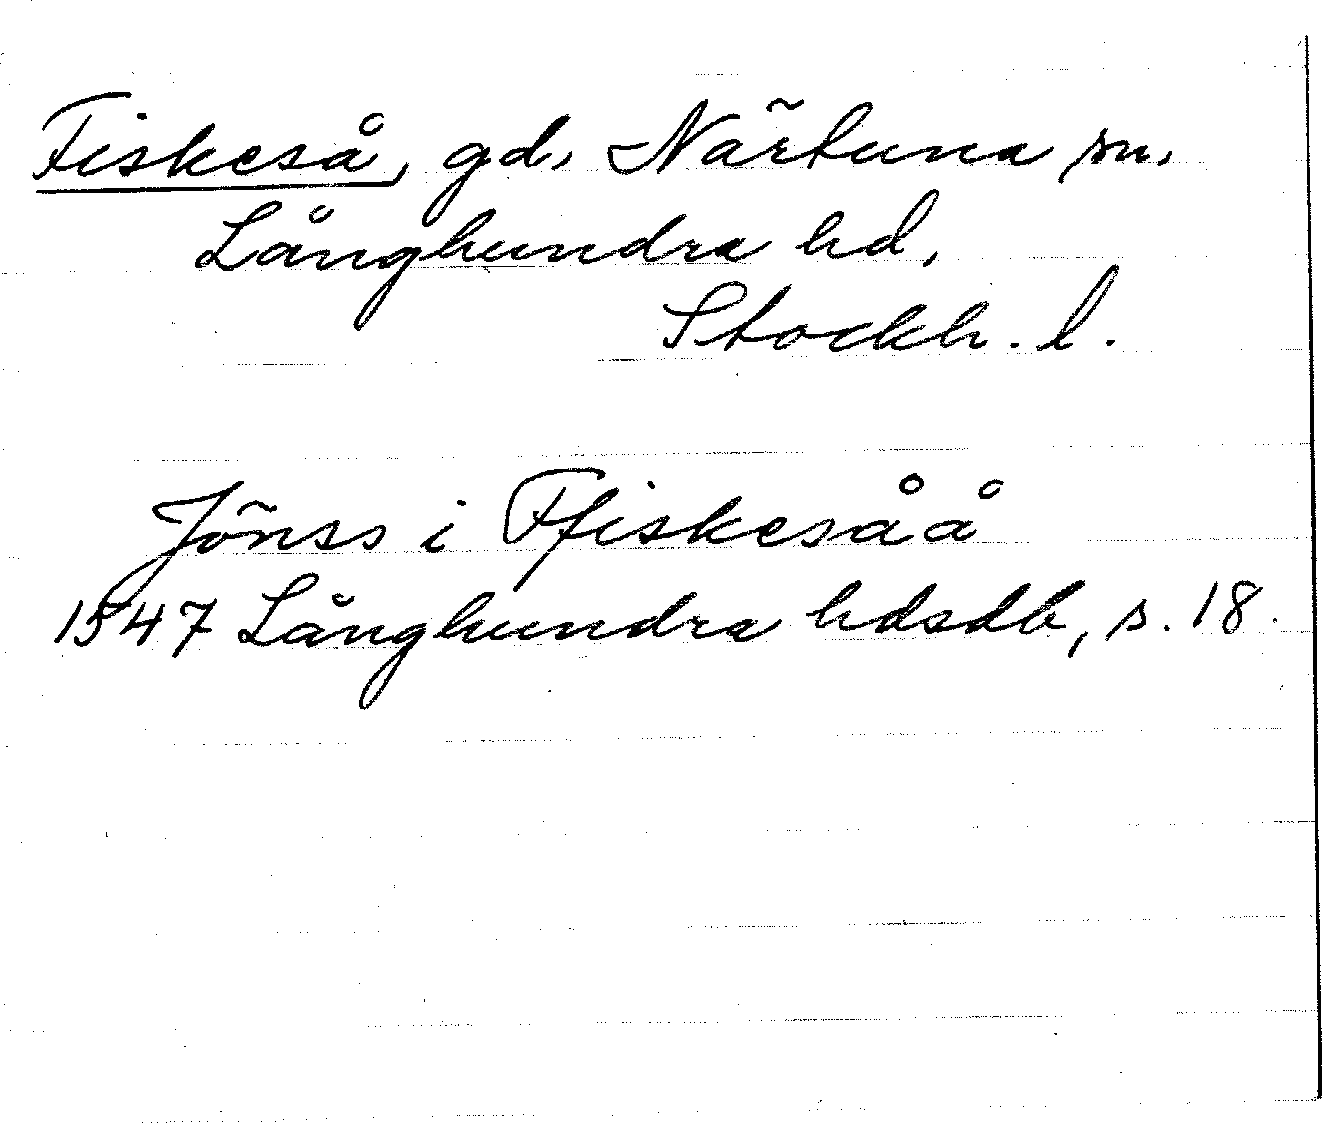 Fiskeså, gd, Närtuna sn.
Långhundra hd.
Stockh. l.
Jönss i Ffiskesåå
1547 Långhundra hdsdb, s. 18.